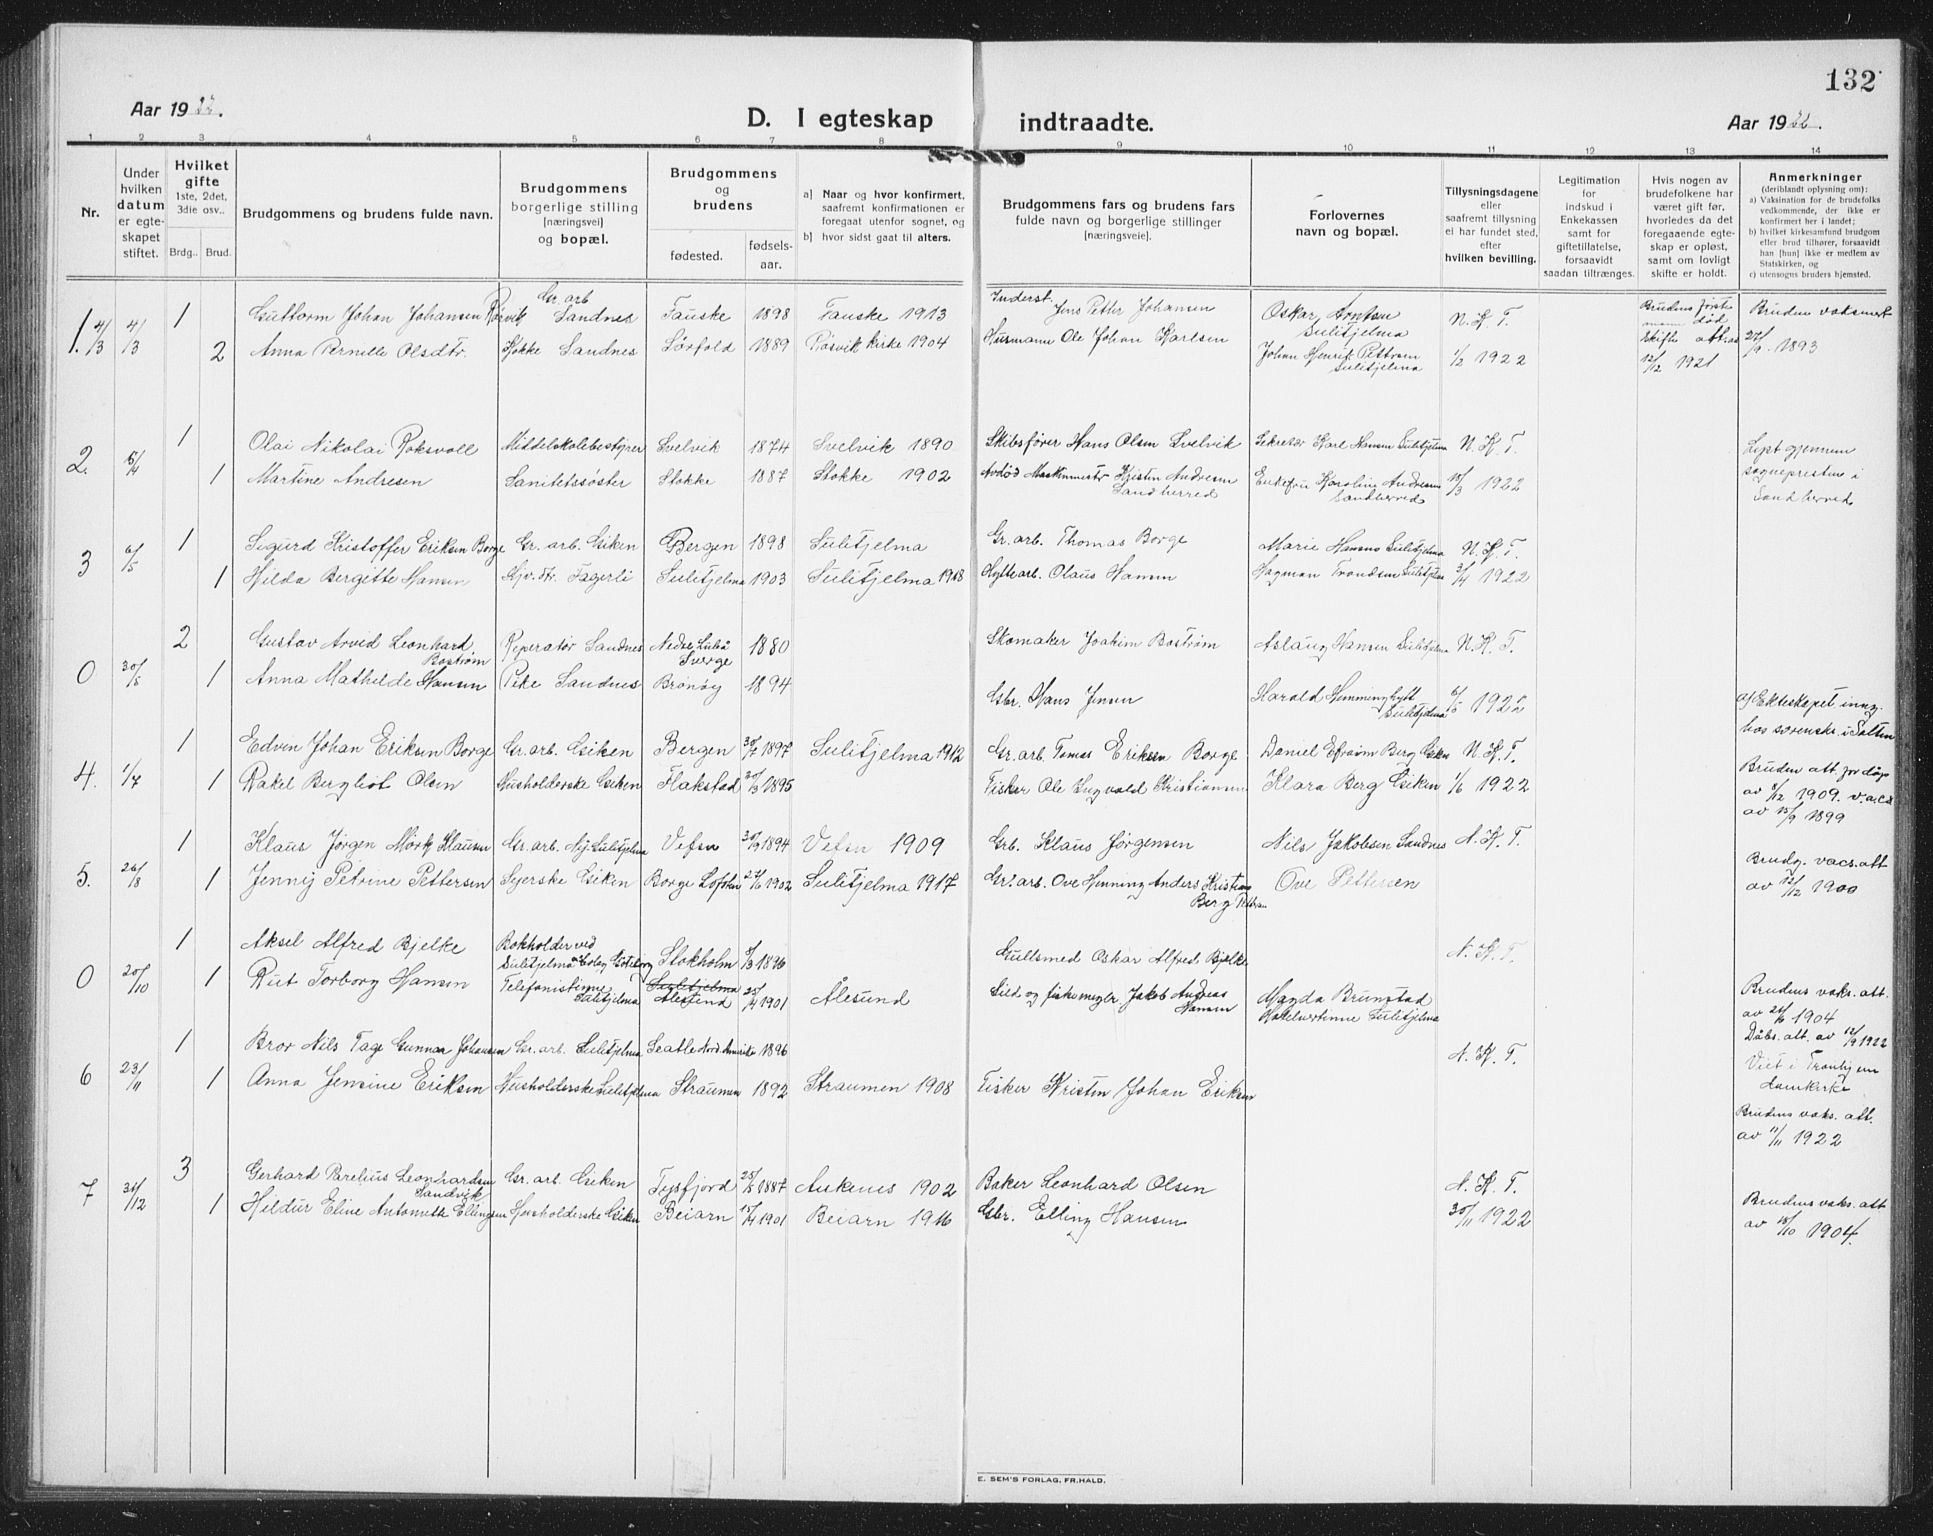 132
Aar 1922.
D. I egteskap indtraadte.
Aar 1922.
1 2 3 4 5 6 7 8 9 10 11 12 13 14
Nr.
Under hvilken datum er egte-skapet stiftet.
Hvilket gifte 1ste, 2det, 3die osv..
Brdg.. Brud.
Brudgommens og brudens fulde navn.
Brudgommens borgerlige stilling [næringsvei] og bopæl.
Brudgommens og brudens
fødested.
fødsels-aar.
a] Naar og hvor konfirmert, saafremt konfirmationen er foregaat utenfor sognet, og
b] hvor sidst gaat til alters.
Brudgommens fars og brudens fars fulde navn og borgerlige stillinger [næringsveie].
Forlovernes navn og bopæl.
Tillysningsdagene eller saafremt tillysning ei har fundet sted, efter hvilken bevilling.
Legitimation for indskud i Enkekassen samt for giftetillatelse, forsaavidt saadan tiltrænges.
Hvis nogen av brudefolkene har været gift før, hvorledes da det foregaaende egte-skap er opløst, samt om lovligt skifte er holdt.
Anmerkninger (deriblandt oplysning om): a) Vaksination for de brudefolks vedkommende, der ikke er konfirmert her i landet; b) hvilket kirkesamfund brudgom eller brud tilhører, forsaavidt han [hun] ikke er medlem av Statskirken, og c) utensogns bruders hjemsted.
1. 4/3 4/3 1 Guttorm Johan Johansen Rosvik Gr. arb Sandnes Fauske 1898 Fauske 1913 Inderst. Jens Petter Johansen Oskar Arntsen Sulitjelma N. K. T. Brudens første mann død Bruden vaksinert
2 Anna Pernille Olsdtr. Kokke Sandnes Sørfold 1889 Røsvik kirke 1904 Husmann Ole Johan Karlsen Johan Henrik Pettersen Sulitjelma 1/2 1922 Skifte 12/12 1921 1893
2. 1 Olai Nikolai Roksvoll Middelskolebestyrer Svelvik 1874 Svelvik 1890 Skibsfører Hans Olsen Svelvik Sekretær Karl Hansen Sulitjelma N. K. T. Lyst gjennem
1 Martine Andresen Sanitetssøster Stokke 1887 Stokke 1902 Avdød Maskinmestr Kristen Andresen Sandherred Enkefru Karoline Andresen Sandherred 1922 sognepresten i Sandherred
3 6/5 1 Sigurd Kristoffer Eriksen Borge Gr. arb. Giken Bergen 1898 Sulitjelma Gr. arb. Thomas Borge Marie Hansen Sulitjelma N. K. T.
1 Hilda Bergitte Hansen Tj. dtr. Fagerli Sulitjelma 1903 Sulitjelma 1918 Hyttearb. Olaus Hansen Hagman Trondsen Sulitjelma 3/4 1922
2 Gustav Arved Leonhard Bostrøm Reperatør Sandnes Nedre Luleå Sverge 1880 Skomaker Joakim Bostrøm Aslaug Hansen Sulitjelma N. K. T.
0 30/5 1 Anna Mathilde Hansen Pike Sandnes Brønøy 1894 Gbr. Hans Jensen Harald Hemminghytt Sulitjelma 6/5 1922 a) Ekteskapet inng. hos sorenskr. i Salten
1 Edvin Johan Eriksen Borge Gr. arb. Giken Bergen 1897 Sulitjelma 1912 Gr. arb. Tomas Eriksen Borge Daniel Efraim Berg Giken N. K. T. Bruden att. for dåp
4. 1/7 1 Rakel Bergliot Olsen Husholderske Giken Flakstad 1895 Fisker Ole Ingvald Kristiansen Klara Berg Giken 1/6 1922 av 1909. v. acs av 15/9 1899
1 Klaus Jørgen Mørk Klausen Gr. arb. Ny Sulitjelma Vefsn 30/9 1894 Vefsn 1909 Grb. Klaus Jørgensen Nils Jakobsen Sandnes N. K. T. Brudg. vacs. att
5. 26/8 1 Jennij Petrine Pettersen Syerske Giken Borge Lofoten 1902 Sulitjelma 1917 Gr. arb. Ove Henning Anders Kristian Berg Pettersen Ove Pettersen av 12/12 1900
1 Aksel Alfred Bjelke Bokholder ved Sulitjelma Stokholm 1896 Gullsmed Oskar Alfred Bjelke N. K. T.
0 20/10 1 Rut Torborg Hansen Telefonistinne Sulitjelma Sulitjelma Ålesund 25/4 1901 Ålesund Sild og fiskemegler Jakob Andreas Hansen Magda Brunstad Hotelvertinne Sulitjelma Brudens vaks. att. av 1904
1 Bror Nils Tage Gunnar Johansen Gr. arb. Sulitjelma Seatle Nord. Amerika 1896 N. K. T. Dåbs. att. av 1922
6 23/11 1 Anna Jensine Eriksen Husholderske Sulitjelma Straumen 1892 Straumen 1908 Fisker Kristen Johan Eriksen Viet i Trondhjem domkirke
Brudens vaks. att. av 11/11 1922
3 Gerhard Parelius Leonhardsen Sandvik Gr. arb. Giken Tysfjord 1887 Ankenes 1902 Baker Leonhard Olsen N. K. T.
7 31/12 1 Hildur Eline Antonette Ellingsen Husholderske Giken Beiarn 15/4 1901 Beiarn 1916 Gbr. Elling Hansen 30/11 1922 Brudens vaks. att av 18/10 1904.
E. SEM'S FORLAG, FR.HALD.